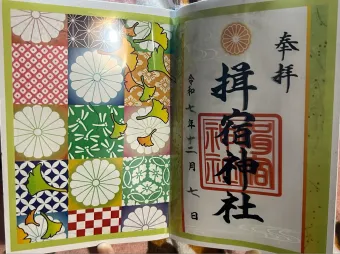 奉拝
揖宿神社
令和七年十二月七日